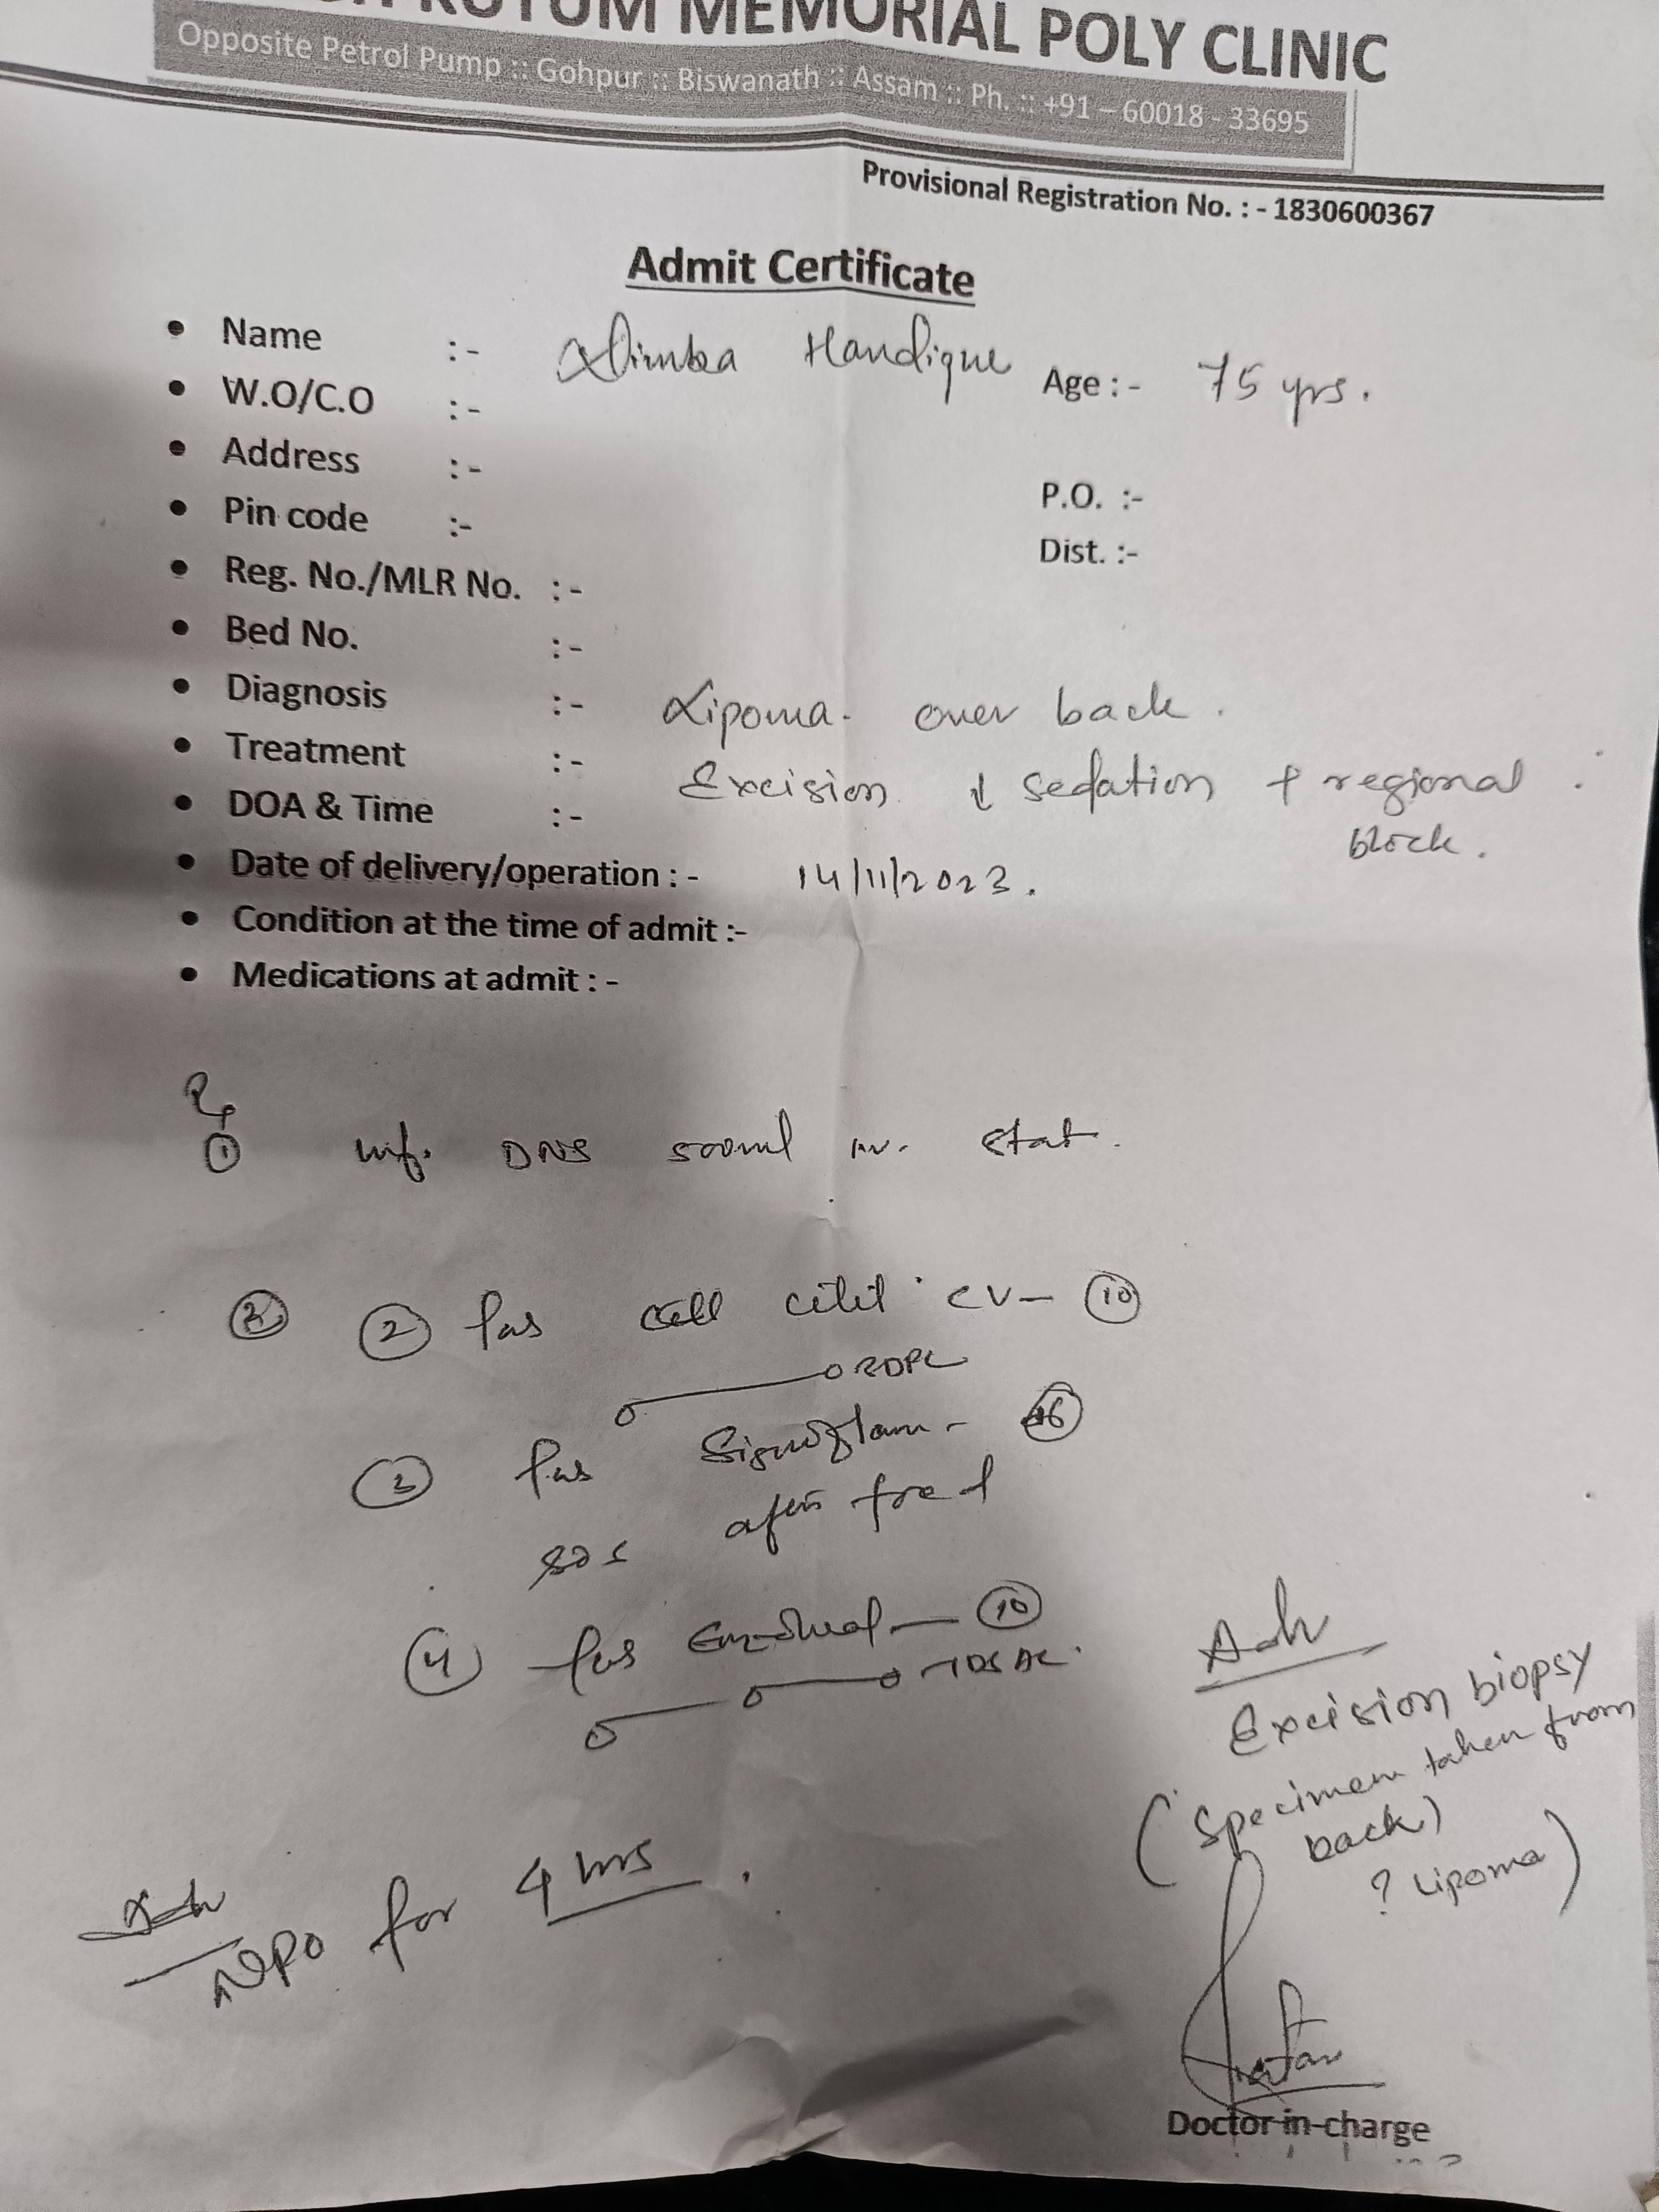 MEMORIAL POLY CLINIC
Opposite Petrol Pump :: Gohpur :: Biswanath :: Assam :: Ph. :: +91 – 60018 - 33695
Provisional Registration No. : - 1830600367
Admit Certificate
• Name :- Handique Age :- 75 yrs.
• W.O/C.O :-
• Address :-
P.O. :-
• Pin code :-
Dist. :-
• Reg. No./MLR No. :-
• Bed No. :-
• Diagnosis :- Lipoma over back.
• Treatment :- Excision ↓ sedation + regional block.
• DOA & Time :-
• Date of delivery/operation : - 14/11/2023.
• Condition at the time of admit :-
• Medications at admit : -
Rx
① Inf. DNS 500ml IV. stat.
② CV – ⑩
③
SOS after food
④ – ⑩
TDS AC.
Adv
Excision biopsy
(Specimen taken from
back)
? Lipoma)
NPO for 4 hrs.
Doctor in-charge